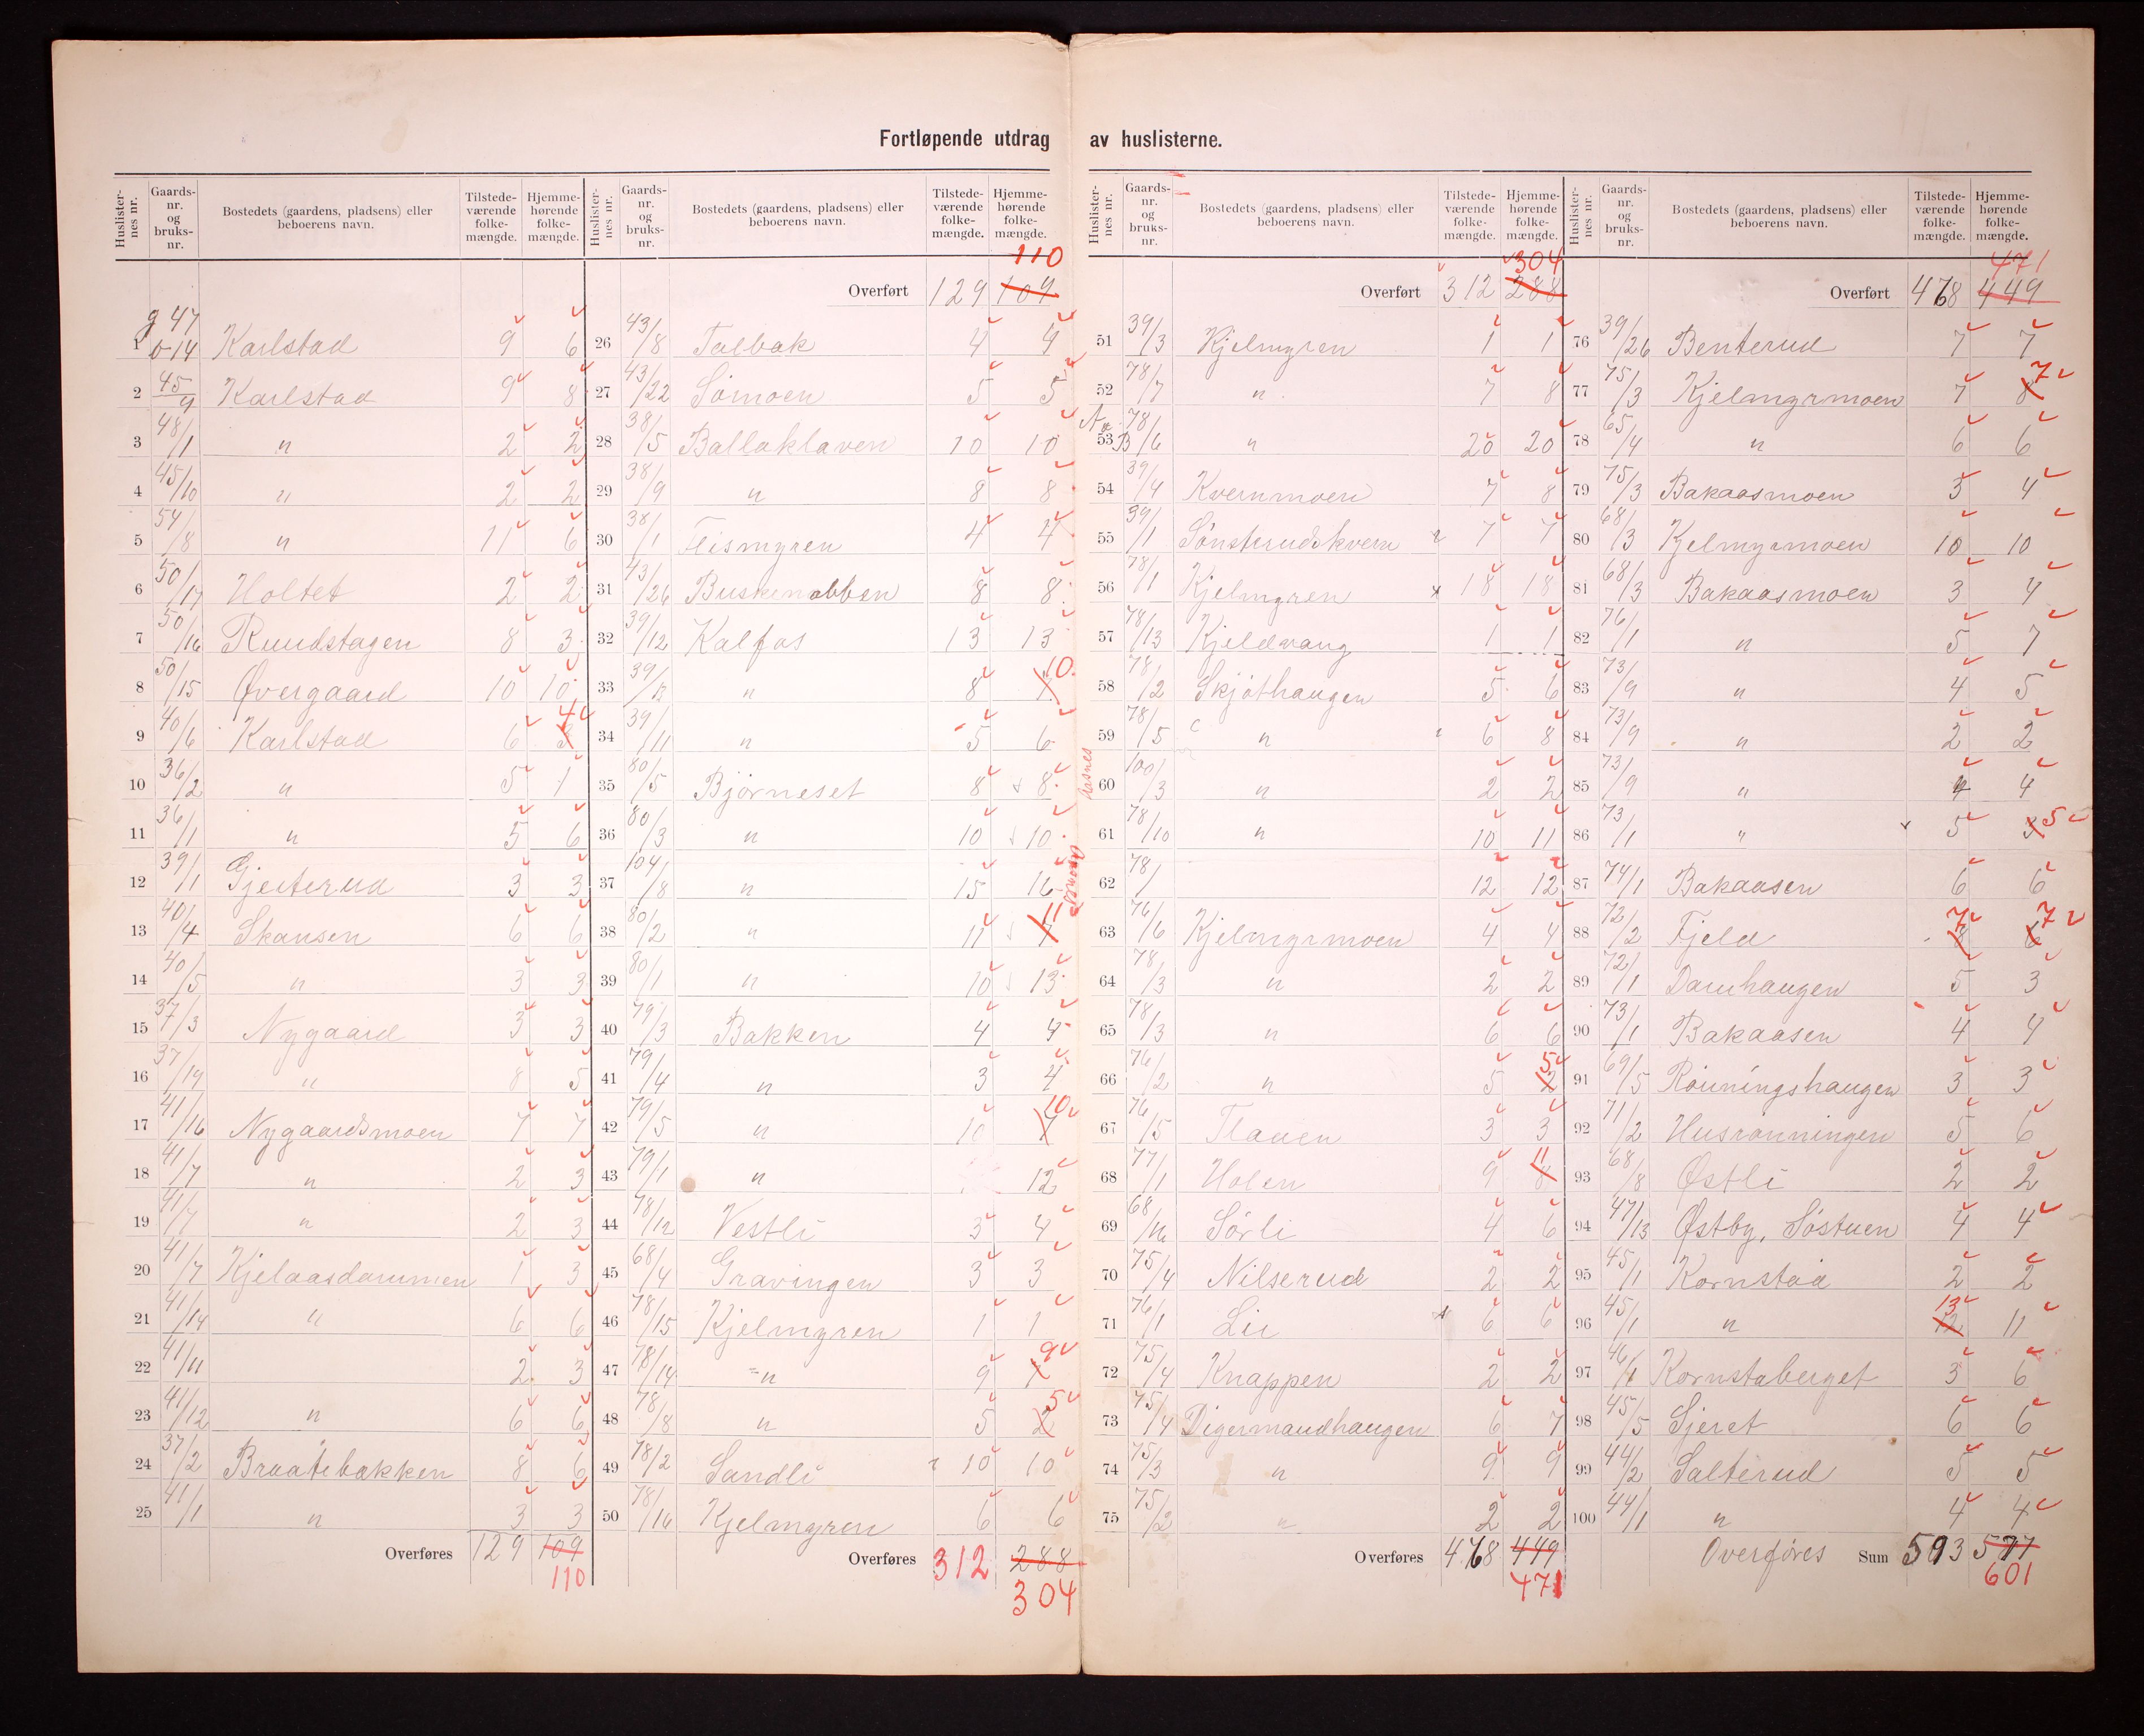 Fortløpende utdrag av huslisterne.
Huslister-nes nr. Gaards-nr. og bruks-nr. Bostedets (gaardens, pladsens) eller beboerens navn. Tilstede-værende folke-mængde. Hjemme-hørende folke-mængde.
1 g 47 b 14 Karlstad 9 6
2 45/9 Karlstad 9 8
3 48/1 " 2 2
4 45/10 " 2 2
5 54/8 " 11 6
6 50/17 Holtet 2 2
7 50/16 Rundstagen 8 3
8 50/15 Øvergaard 10 10
9 40/6 Karlstad 6 3 4
10 36/2 " 5 1
11 36/1 " 5 6
12 39/1 Gjeiterud 3 3
13 40/4 Skansen 6 6
14 40/5 " 3 3
15 37/3 Nygaard 3 3
16 37/19 " 8 5
17 41/16 Nygaardsmoen 7 7
18 41/7 " 2 3
19 41/7 " 2 3
20 41/7 Kjelaasdammen 1 3
21 41/14 " 6 6
22 41/11 2 3
23 41/12 " 6 6
24 37/2 Braatebakken 8 6
25 41/1 " 3 3
Overføres 129 109
110
Huslister-nes nr. Gaards-nr. og bruks-nr. Bostedets (gaardens, pladsens) eller beboerens navn. Tilstede-værende folke-mængde. Hjemme-hørende folke-mængde.
110
Overført 129 109
26 43/8 Talbak 4 4
27 43/22 Sømoen 5 5
28 38/5 Ballaklaven 10 10
29 38/9 " 8 8
30 38/1 Flismyren 4 4
31 43/26 8 8
32 39/12 Kalfos 13 13
33 39/12 " 8 10
34 39/11 " 5 6
35 80/5 Bjørneset 8 8
36 80/3 " 10 10
37 104/8 " 15 16
38 80/2 " 11 7 11
39 80/1 " 10 13
40 79/3 Bakken 4 4
41 79/4 " 3 4
42 79/5 " 10 7 10
43 79/1 " 12
44 78/12 Vestli 3 4
45 68/4 Gravingen 3 3
46 78/15 Kjelmyren 1 1
47 78/14 " 9 9
48 78/8 " 5 2 5
49 78/2 Sandli 10 10
50 78/16 Kjelmyren 6 6
Overføres 312 288
304
Huslister-nes nr. Gaards-nr. og bruks-nr. Bostedets (gaardens, pladsens) eller beboerens navn. Tilstede-værende folke-mængde. Hjemme-hørende folke-mængde.
304
Overført 312 288
51 39/3 Kjelmyren 1 1
52 78/7 " 7 8
53 78/6 " 20 20
54 39/4 Kvernmoen 7 8
55 39/1 Sønsterudskvern 7 7
56 78/1 Kjelmyren 18 18
57 78/13 Kjeldvang 1 1
58 78/2 Skjøthaugen 5 6
59 78/5 " 6 8
Aasnes
60 100/3 " 2 2
61 78/10 " 10 11
62 78/ 12 12
63 76/6 Kjelmyrmoen 4 4
64 78/3 " 2 2
65 78/3 " 6 6
66 76/2 " 5 2 5
67 76/5 Flaaen 3 3
68 77/1 Holen 9 8 11
69 68/ Sørli 4 6
70 75/4 Nilserud 2 2
71 76/1 Lii 6 6
72 75/4 Knappen 2 2
73 75/4 Digermandhaugen 6 7
74 75/3 " 9 9
75 75/2 " 2 2
Overføres 468 449
471
Huslister-nes nr. Gaards-nr. og bruks-nr. Bostedets (gaardens, pladsens) eller beboerens navn. Tilstede-værende folke-mængde. Hjemme-hørende folke-mængde.
471
Overført 468 449
76 39/26 Benterud 7 7
77 75/3 Kjelmyrmoen 7 8 7
78 65/4 " 6 6
79 75/3 Bakaasmoen 3 4
80 68/3 Kjelmyrmoen 10 10
81 68/3 Bakaasmoen 3 4
82 76/1 " 5 7
83 73/9 " 4 5
84 73/9 " 2 2
85 73/9 " 4 4
86 73/1 " 5 3 5
87 74/1 Bakaasen 6 6
88 72/2 Fjeld 8 7 6 7
89 72/1 Damhaugen 5 3
90 73/1 Bakaasen 4 4
91 69/5 Røiningshaugen 3 3
92 71/2 Husrønningen 5 6
93 68/8 Østli 2 2
94 47/13 Østby, Søstuen 4 4
95 45/1 Kornstad 2 2
96 45/1 " 12 13 11
97 46/1 Kornstaberget 3 6
98 45/5 Sjeret 6 6
99 44/2 Salterud 5 5
100 44/1 " 4 4
Overføres Sum 593 577
601